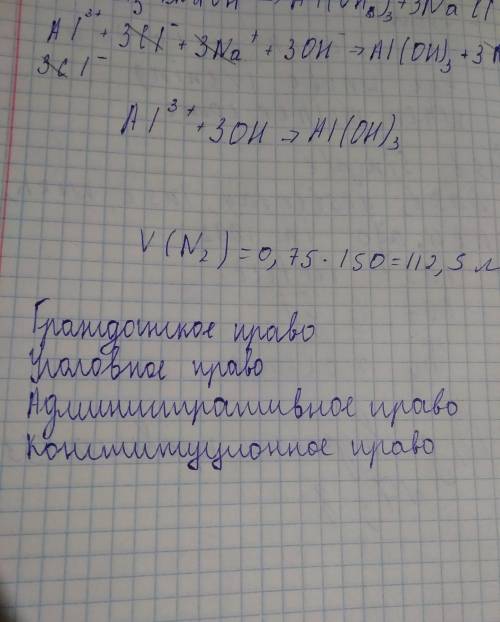 → Al(OH)3+3NaCl
Al³⁺ + 3Cl⁻ + 3Na⁺ + 3OH⁻ → Al(OH)3 + 3
3Cl⁻
Al³⁺ + 3OH → Al(OH)3
V(N2) = 0,75 · 150 = 112,5 л
Гражданское право
Уголовное право
Административное право
Конституционное право